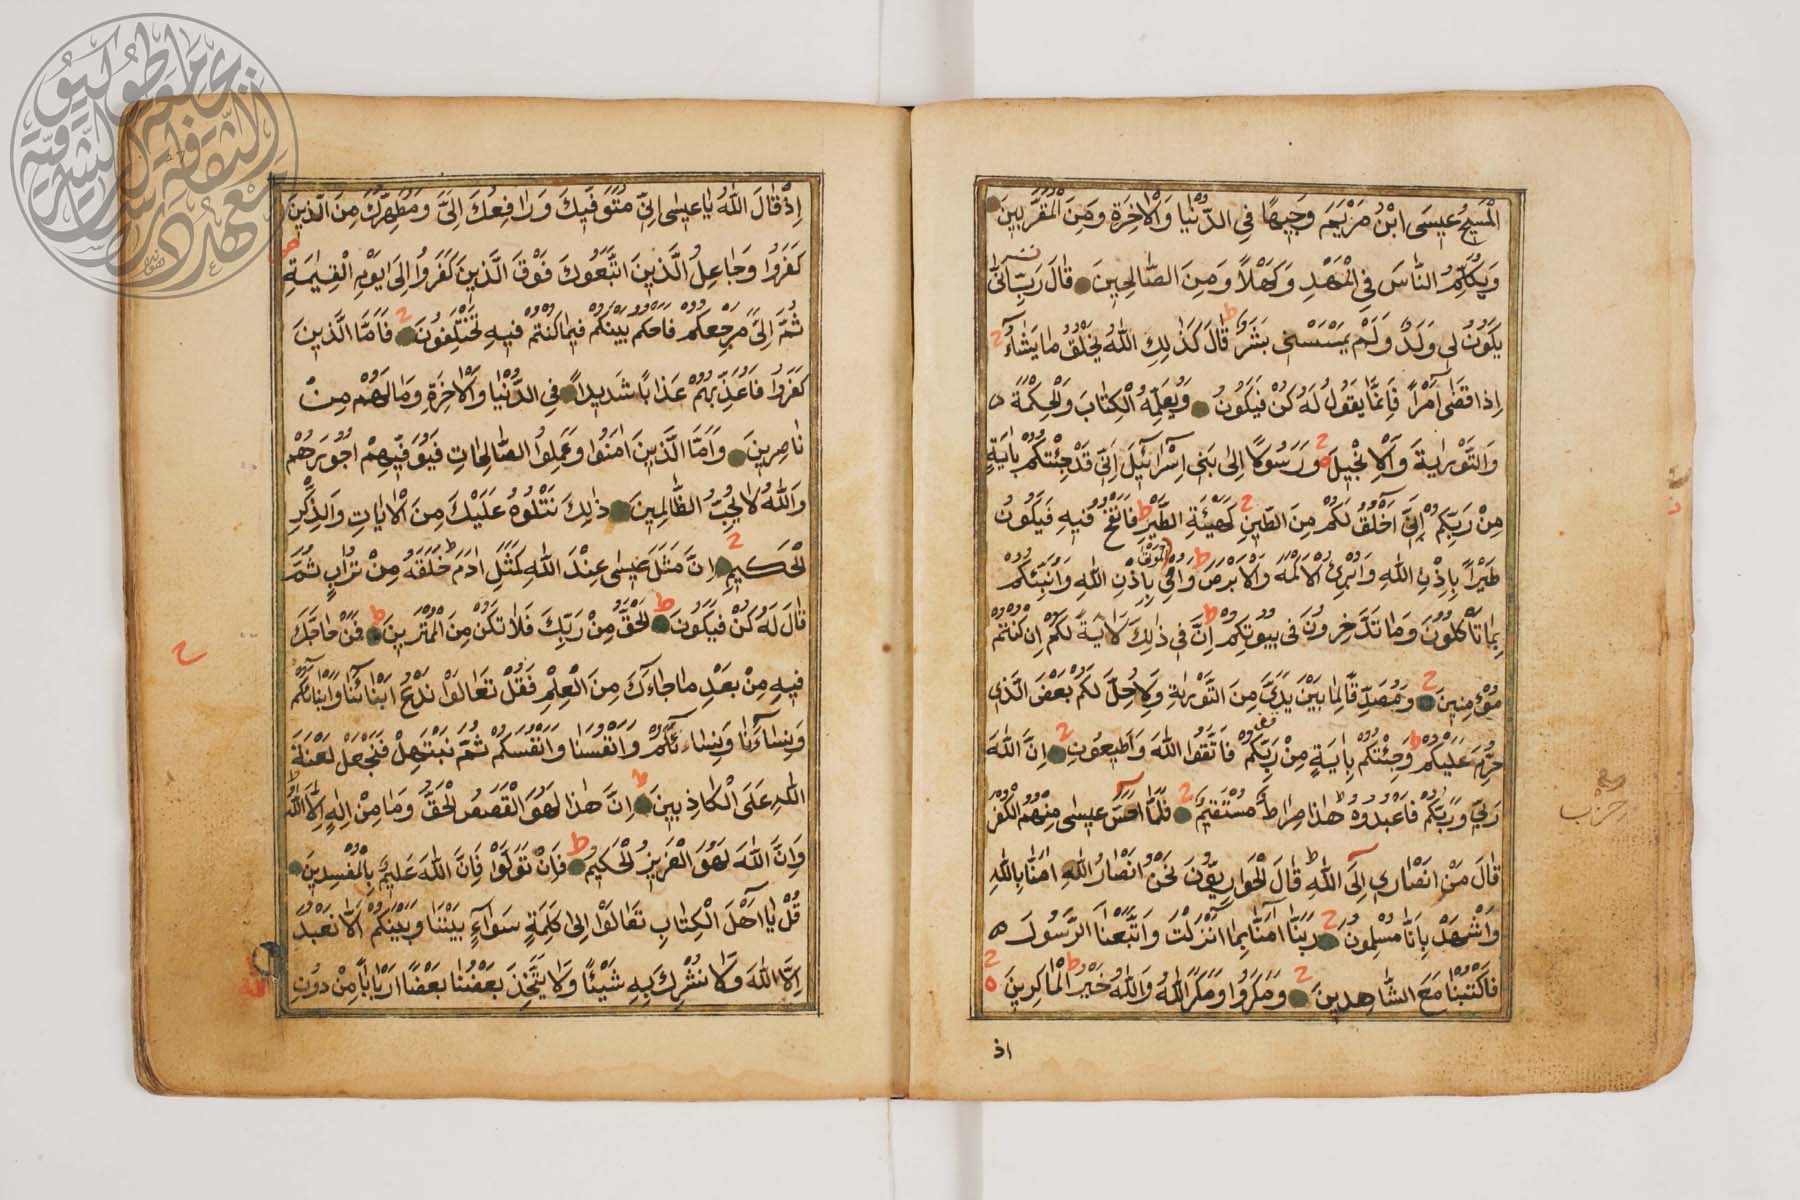 الْمَسِيحُ عِيسَى ابْنُ مَرْيَمَ وَجِيهًا فِي الدُّنْيَا وَالْاٰخِرَةِ وَمِنَ الْمُقَرَّبِينَ
وَيُكَلِّمُ النَّاسَ فِي الْمَهْدِ وَكَهْلًا وَمِنَ الصَّالِحِينَ قَالَ رَبِّ اَنّٰى
يَكُونُ لِى وَلَدٌ وَلَمْ يَمْسَسْنِى بَشَرٌ ط قَالَ كَذٰلِكِ اللّٰهُ يَخْلُقُ مَا يَشَاءُ
اِذَا قَضٰى اَمْرًا فَاِنَّمَا يَقُولُ لَهُ كُنْ فَيَكُونُ وَيُعَلِّمُهُ الْكِتَابَ وَالْحِكْمَةَ ه
وَالتَّوْرٰيةَ وَالْاِنْجِيلَ وَرَسُولًا اِلٰى بَنِى اِسْرَآئِيلَ اَنِّى قَدْ جِئْتُكُمْ بِاٰيَةٍ
مِنْ رَبِّكُمْ اَنِّى اَخْلُقُ لَكُمْ مِنَ الطِّينِ كَهَيْئَةِ الطَّيْرِ فَاَنْفُخُ فِيهِ فَيَكُونُ
طَيْرًا بِاِذْنِ اللّٰهِ وَاُبْرِئُ الْاَكْمَهَ وَالْاَبْرَصَ ط وَاُحْيِ الْمَوْتٰى بِاِذْنِ اللّٰهِ وَاُنَبِّئُكُمْ
بِمَا تَاْكُلُونَ وَمَا تَدَّخِرُونَ فِى بُيُوتِكُمْ ط اِنَّ فِى ذٰلِكَ لَاٰيَةً لَكُمْ اِنْ كُنْتُمْ
مُؤْمِنِينَ وَمُصَدِّقًا لِمَا بَيْنَ يَدَىَّ مِنَ التَّوْرٰيةِ وَلِاُحِلَّ لَكُمْ بَعْضَ الَّذِى
حُرِّمَ عَلَيْكُمْ ط وَجِئْتُكُمْ بِاٰيَةٍ مِنْ رَبِّكُمْ فَاتَّقُوا اللّٰهَ وَاَطِيعُونِ اِنَّ اللّٰهَ
رَبِّى وَرَبُّكُمْ فَاعْبُدُوهُ ط هٰذَا صِرَاطٌ مُسْتَقِيمٌ فَلَمَّا اَحَسَّ عِيسٰى مِنْهُمُ الْكُفْرَ
قَالَ مَنْ اَنْصَارِى اِلَى اللّٰهِ ط قَالَ الْحَوَارِيُّونَ نَحْنُ اَنْصَارُ اللّٰهِ اٰمَنَّا بِاللّٰهِ
وَاشْهَدْ بِاَنَّا مُسْلِمُونَ رَبَّنَا اٰمَنَّا بِمَا اَنْزَلْتَ وَاتَّبَعْنَا الرَّسُولَ ه
فَاكْتُبْنَا مَعَ الشَّاهِدِينَ وَمَكَرُوا وَمَكَرَ اللّٰهُ ط وَاللّٰهُ خَيْرُ الْمَاكِرِينَ
اذ
حزب
اِذْ قَالَ اللّٰهُ يَا عِيسٰى اِنِّى مُتَوَفِّيكَ وَرَافِعُكَ اِلَىَّ وَمُطَهِّرُكَ مِنَ الَّذِينَ
كَفَرُوا وَجَاعِلُ الَّذِينَ اتَّبَعُوكَ فَوْقَ الَّذِينَ كَفَرُوا اِلٰى يَوْمِ الْقِيٰمَةِ
ثُمَّ اِلَىَّ مَرْجِعُكُمْ فَاَحْكُمُ بَيْنَكُمْ فِيمَا كُنْتُمْ فِيهِ تَخْتَلِفُونَ فَاَمَّا الَّذِينَ
كَفَرُوا فَاُعَذِّبُهُمْ عَذَابًا شَدِيدًا فِى الدُّنْيَا وَالْاٰخِرَةِ وَمَا لَهُمْ مِنْ
نَاصِرِينَ وَاَمَّا الَّذِينَ اٰمَنُوا وَعَمِلُوا الصَّالِحَاتِ فَيُوَفِّيهِمْ اُجُورَهُمْ
وَاللّٰهُ لَا يُحِبُّ الظَّالِمِينَ ذٰلِكَ نَتْلُوهُ عَلَيْكَ مِنَ الْاٰيَاتِ وَالذِّكْرِ
الْحَكِيمِ اِنَّ مَثَلَ عِيسٰى عِنْدَ اللّٰهِ كَمَثَلِ اٰدَمَ ط خَلَقَهُ مِنْ تُرَابٍ ثُمَّ
قَالَ لَهُ كُنْ فَيَكُونُ ط الْحَقُّ مِنْ رَبِّكَ فَلَا تَكُنْ مِنَ الْمُمْتَرِينَ ط فَمَنْ حَاجَّكَ
فِيهِ مِنْ بَعْدِ مَا جَاءَكَ مِنَ الْعِلْمِ فَقُلْ تَعَالَوْا نَدْعُ اَبْنَاءَنَا وَاَبْنَاءَكُمْ
وَنِسَاءَنَا وَنِسَاءَكُمْ وَاَنْفُسَنَا وَاَنْفُسَكُمْ ثُمَّ نَبْتَهِلْ فَنَجْعَلْ لَعْنَةَ
اللّٰهِ عَلَى الْكَاذِبِينَ ط اِنَّ هٰذَا لَهُوَ الْقَصَصُ الْحَقُّ وَمَا مِنْ اِلٰهٍ اِلَّا اللّٰهُ ط
وَاِنَّ اللّٰهَ لَهُوَ الْعَزِيزُ الْحَكِيمُ ط فَاِنْ تَوَلَّوْا فَاِنَّ اللّٰهَ عَلِيمٌ بِالْمُفْسِدِينَ
قُلْ يَا اَهْلَ الْكِتَابِ تَعَالَوْا اِلٰى كَلِمَةٍ سَوَاءٍ بَيْنَنَا وَبَيْنَكُمْ اَلَّا نَعْبُدَ
اِلَّا اللّٰهَ وَلَا نُشْرِكَ بِهِ شَيْئًا وَلَا يَتَّخِذَ بَعْضُنَا بَعْضًا اَرْبَابًا مِنْ دُونِ